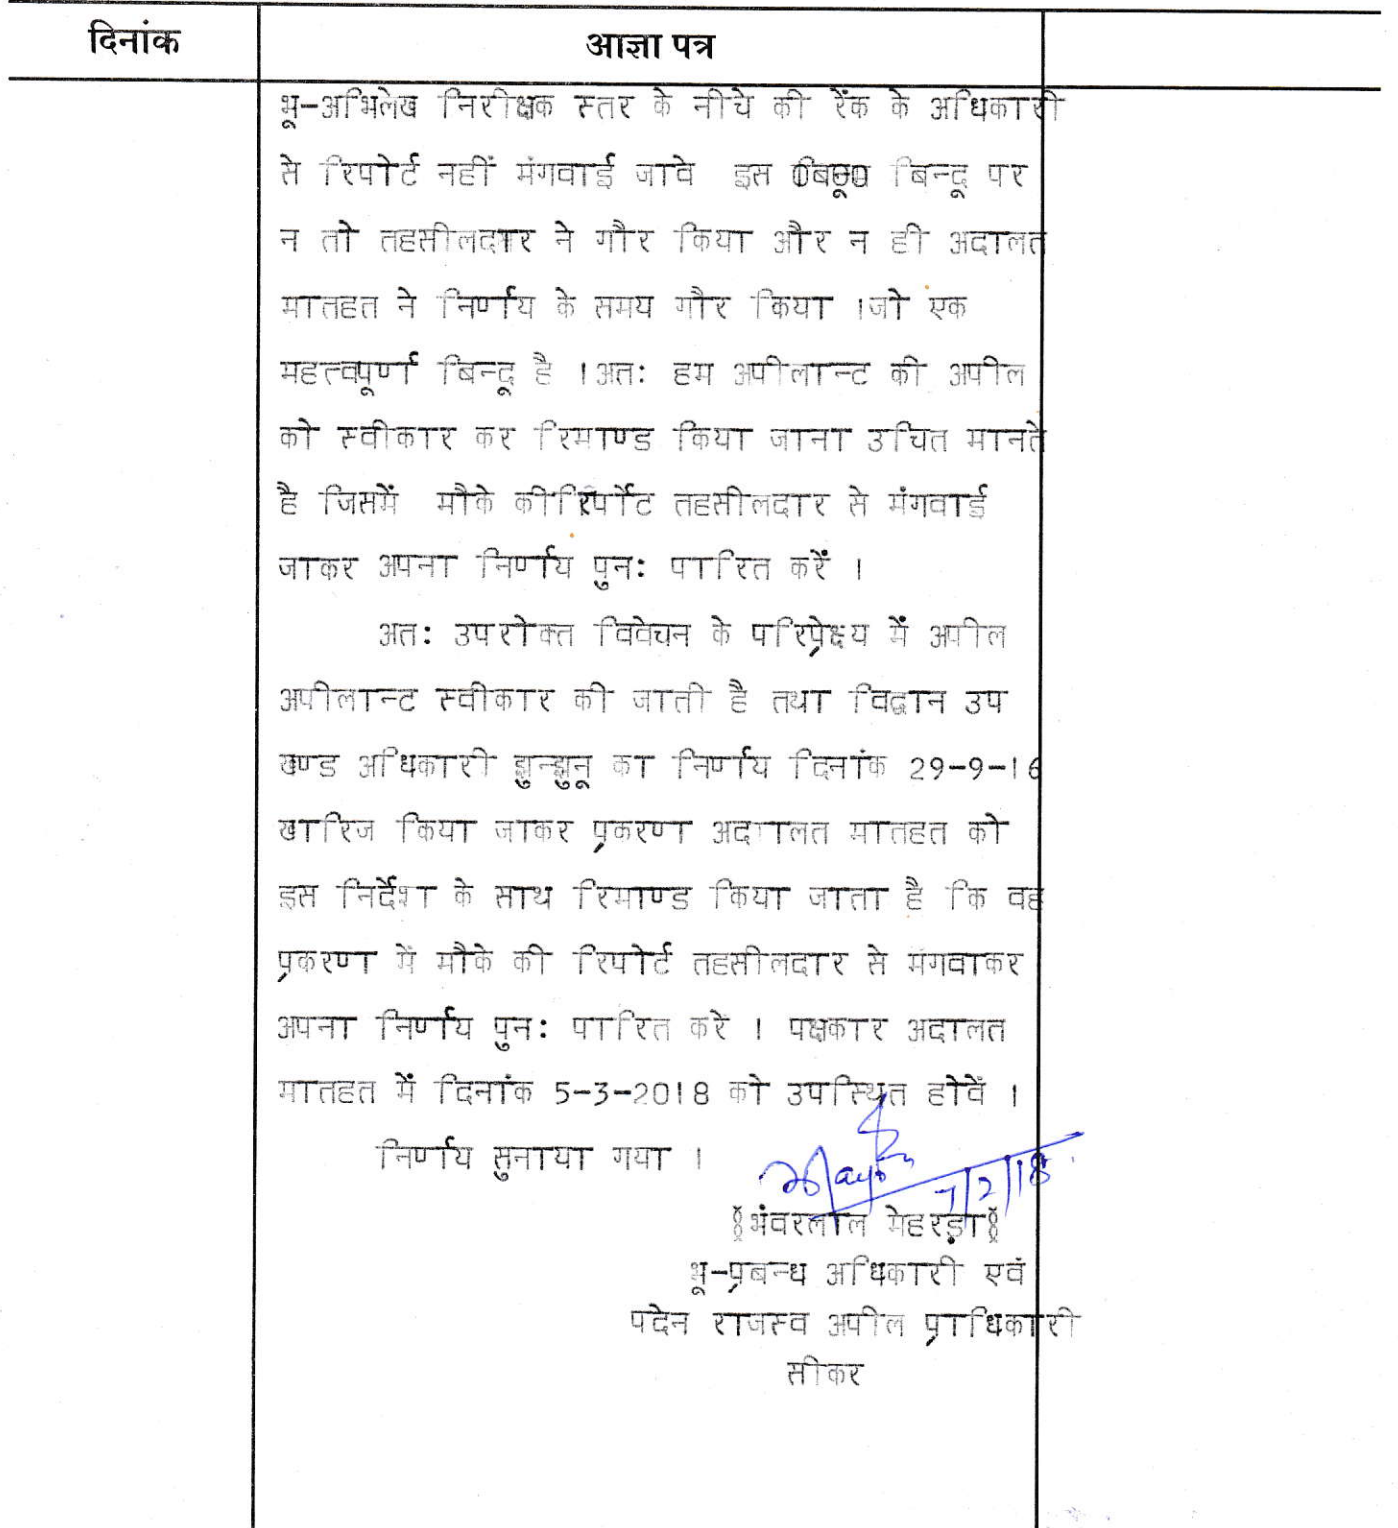 दिनांक आज्ञा पत्र
भू-अभिलेख निरीक्षक स्तर के नीचे की रेंक के अधिकारी
से रिपोर्ट नहीं मंगवाई जावे इस बिन्दू पर
न तो तहसीलदार ने गौर किया और न ही अदालत
मातहत ने निर्णय के समय गौर किया ।जो एक
महत्वपूर्ण बिन्दू है ।अतः हम अपीलान्ट की अपील
को स्वीकार कर रिमाण्ड किया जाना उचित मानते
है जिसमें मौके की रिर्पोट तहसीलदार से मंगवाई
जाकर अपना निर्णय पुनः पारित करें ।
अतः उपरोक्त विवेचन के परिप्रेक्ष्य में अपील
अपीलान्ट स्वीकार की जाती है तथा विद्वान उप
खण्ड अधिकारी झुन्झुनू का निर्णय दिनांक 29-9-16
खारिज किया जाकर प्रकरण अदालत मातहत को
इस निर्देश के साथ रिमाण्ड किया जाता है कि वह
प्रकरण में मौके की रिपोर्ट तहसीलदार से मंगवाकर
अपना निर्णय पुनः पारित करे । पक्षकार अदालत
मातहत में दिनांक 5-3-2018 को उपस्थित होवें ।
निर्णय सुनाया गया ।
7/2/18
भंवरलाल मेहरड़ा
भू-प्रबन्ध अधिकारी एवं
पदेन राजस्व अपील प्राधिकारी
सीकर